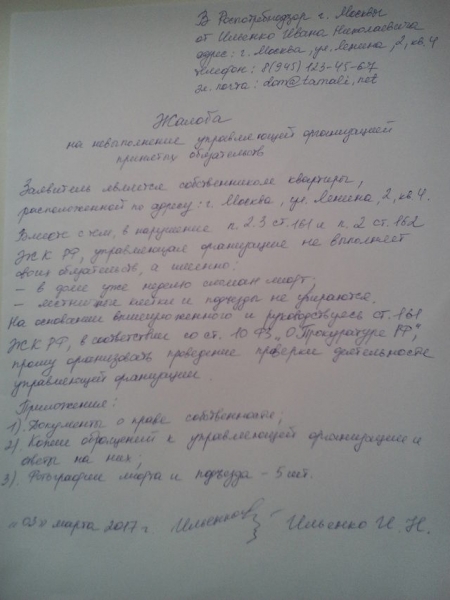 В Роспотребнадзор г. Москвы
от Ильенко Ивана Николаевича
адрес: г. Москва, ул. Ленина, 2, кв. 4
телефон: 8(945) 123-45-67
эл. почта: dom@tamali.net
Жалоба
на невыполнение управляющей организацией
принятых обязательств
Заявитель является собственником квартиры,
расположенной по адресу: г. Москва, ул. Ленина, 2, кв. 4.
Вместе с чем, в нарушение п. 2.3 ст. 161 и п. 2 ст. 162
ЖК РФ, управляющая организация не выполняет
своих обязательств, а именно:
- в доме уже неделю сломан лифт;
- лестничные клетки и подъезды не убираются.
На основании вышеизложенного и руководствуясь ст. 161
ЖК РФ, в соответствие со ст. 10 ФЗ „О Прокуратуре РФ",
прошу организовать проведение проверки деятельности
управляющей организации.
Приложения:
1). Документы о праве собственности;
2). Копии обращений к управляющей организации и
ответы на них;
3). Фотографии лифта и подъезда - 5 шт.
„03" марта 2017 г. Ильенко И. Н.